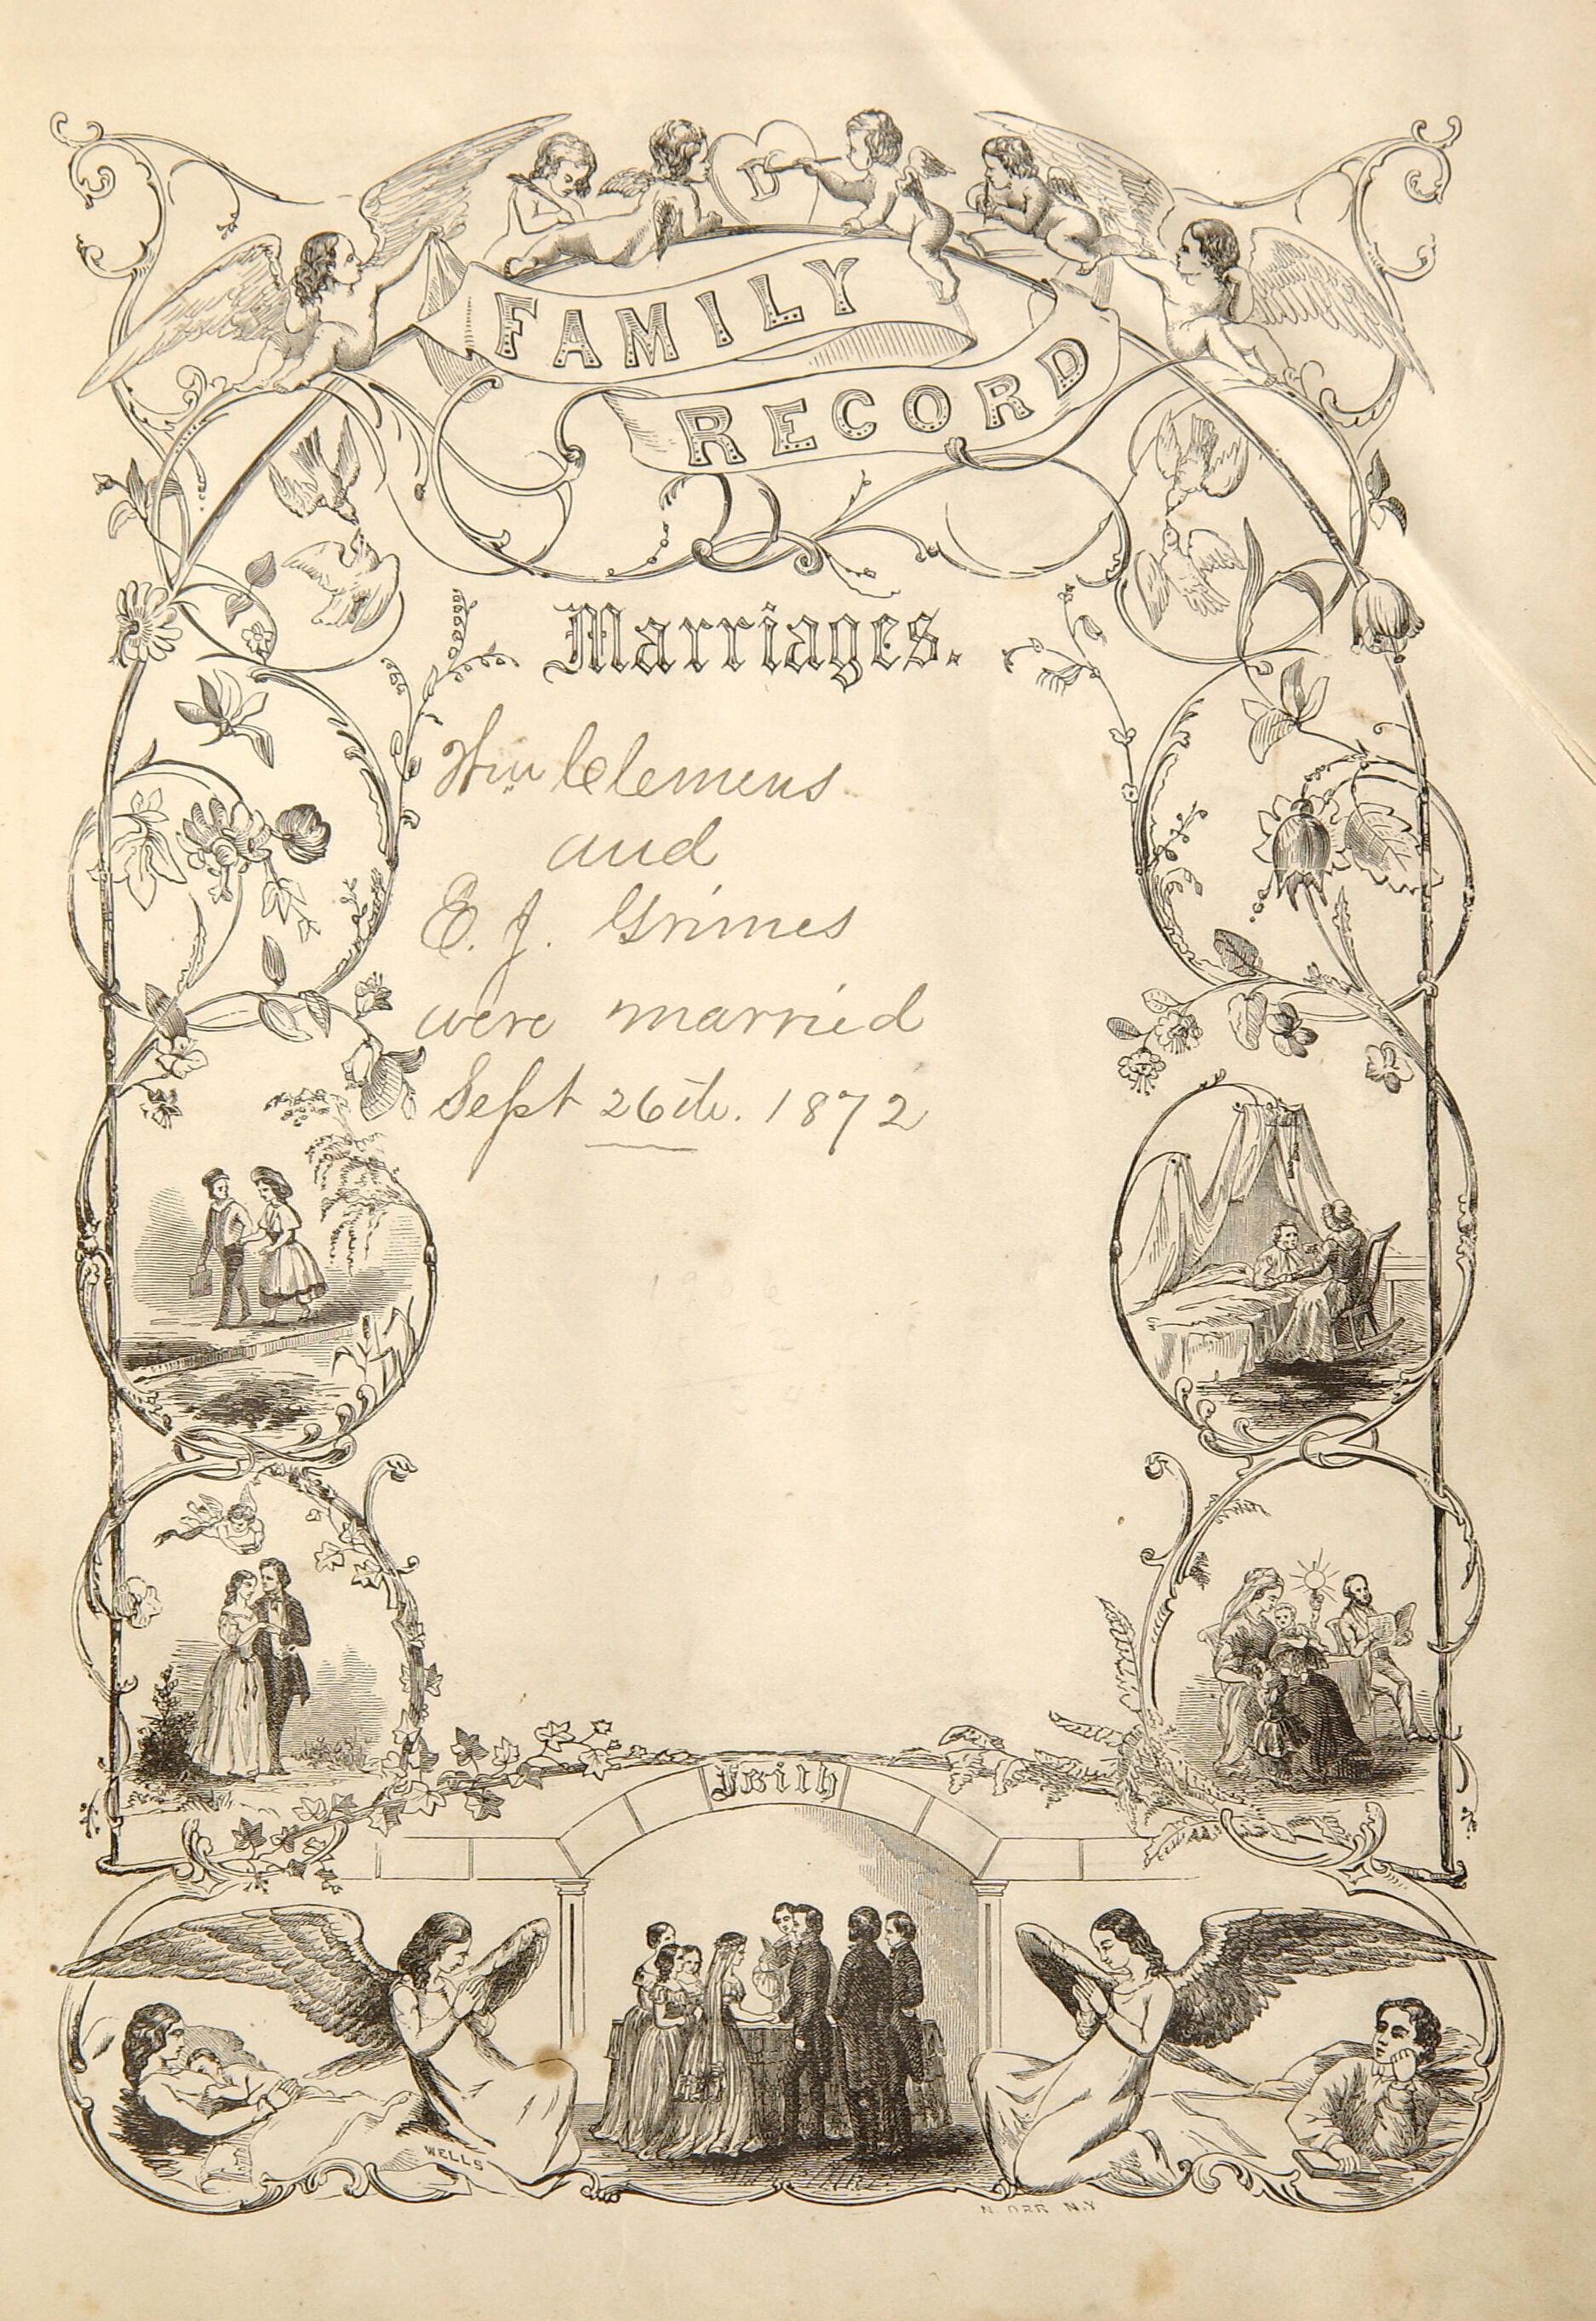 D
FAMILY
RECORD
Marriages.
Wm Clemens
and
E. J. Grimes
were married
Sept 26th. 1872
Faith
WELLS
N. ORR N.Y